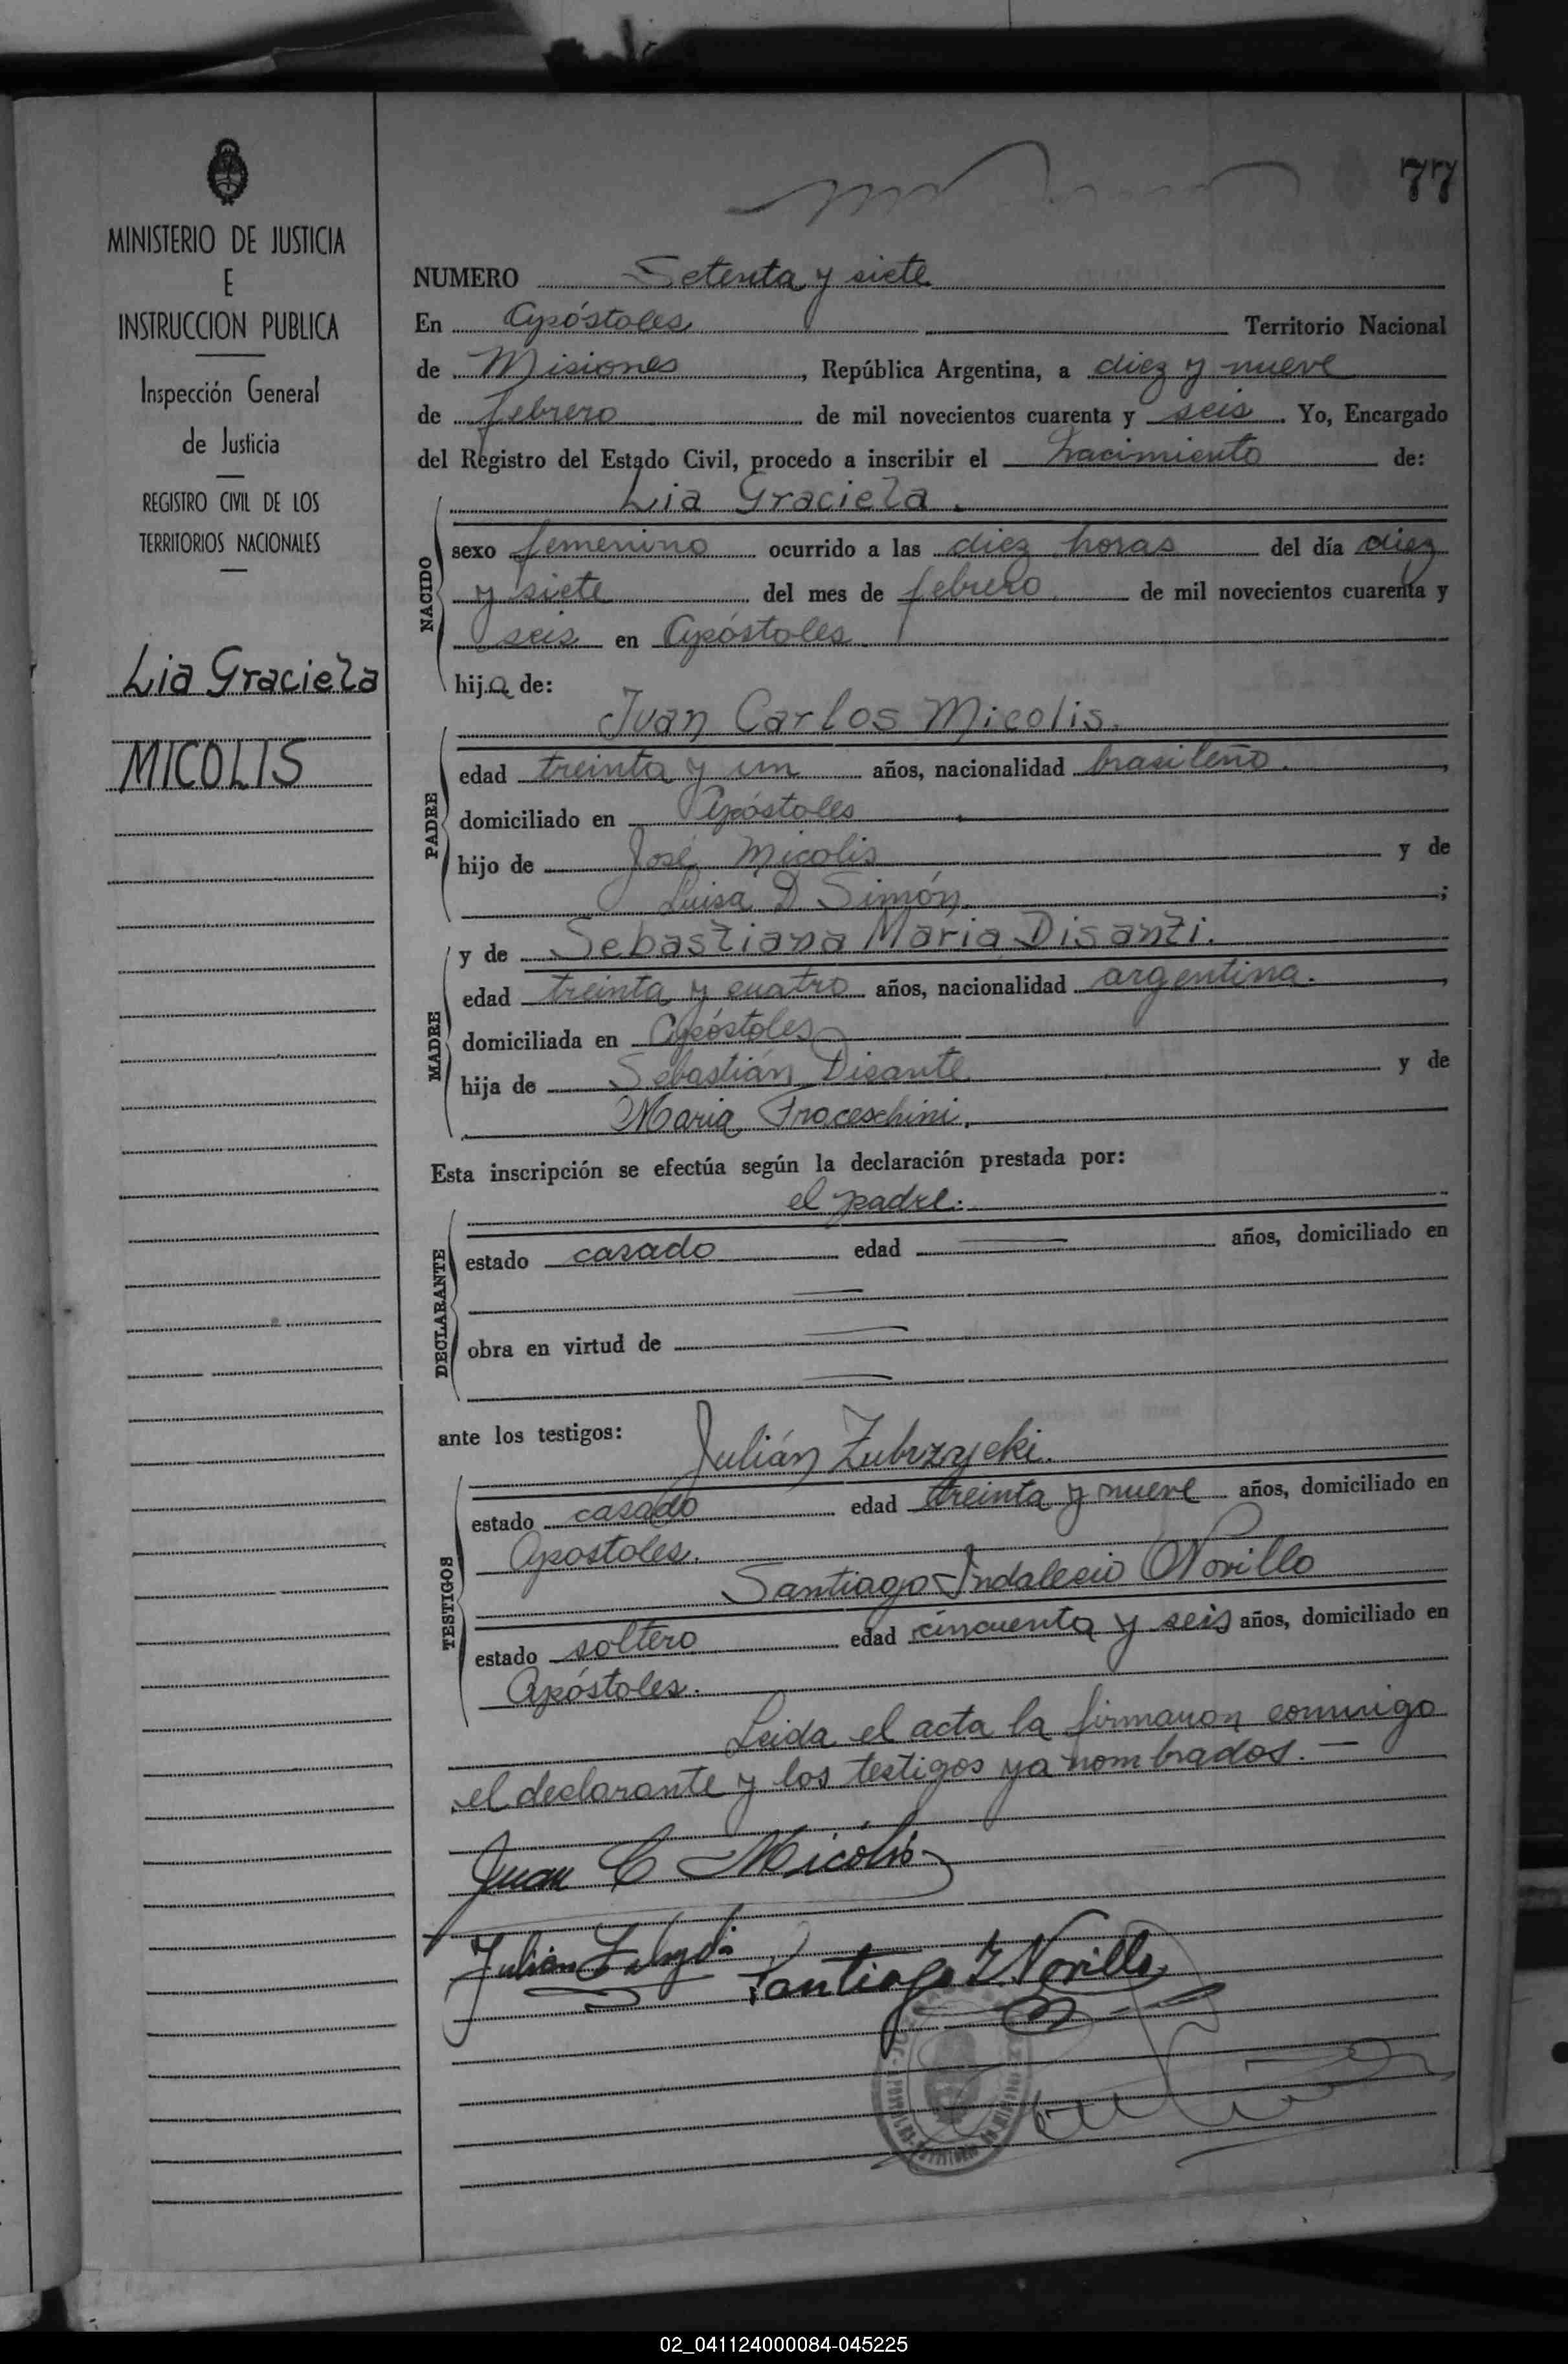 77
MINISTERIO DE JUSTICIA
E
INSTRUCCION PUBLICA
Inspección General
de Justicia
REGISTRO CIVIL DE LOS
TERRITORIOS NACIONALES
Lia Graciela
MICOLIS
NUMERO Setenta y siete
En Apóstoles Territorio Nacional
de Misiones, República Argentina, a diez y nueve
de febrero de mil novecientos cuarenta y seis. Yo, Encargado
del Registro del Estado Civil, procedo a inscribir el nacimiento de:
NACIDO
Lia Graciela.
sexo femenino ocurrido a las diez horas del día diez
y siete del mes de febrero de mil novecientos cuarenta y
seis en Apóstoles.
hija de:
PADRE
Juan Carlos Micolis.
edad treinta y un años, nacionalidad brasileño.,
domiciliado en Apóstoles
hijo de José Micolis y de
Luisa D. Simón. ;
MADRE
y de Sebastiana Maria Disanti.
edad treinta y cuatro años, nacionalidad argentina.,
domiciliada en Apóstoles
hija de Sebastián Disante y de
Maria Froceschini.
Esta inscripción se efectúa según la declaración prestada por:
DECLARANTE
el padre.
estado casado edad — años, domiciliado en
—
obra en virtud de —
—
ante los testigos:
TESTIGOS
Julián Zubrzycki.
estado casado edad treinta y nueve años, domiciliado en
Apostoles.
Santiago Indalecio Novillo
estado soltero edad cincuenta y seis años, domiciliado en
Apóstoles.
Leida el acta la firmaron conmigo
el declarante y los testigos ya nombrados. —
Juan C Micólis
Julián
Santiago I Novillo
02_041124000084-045225